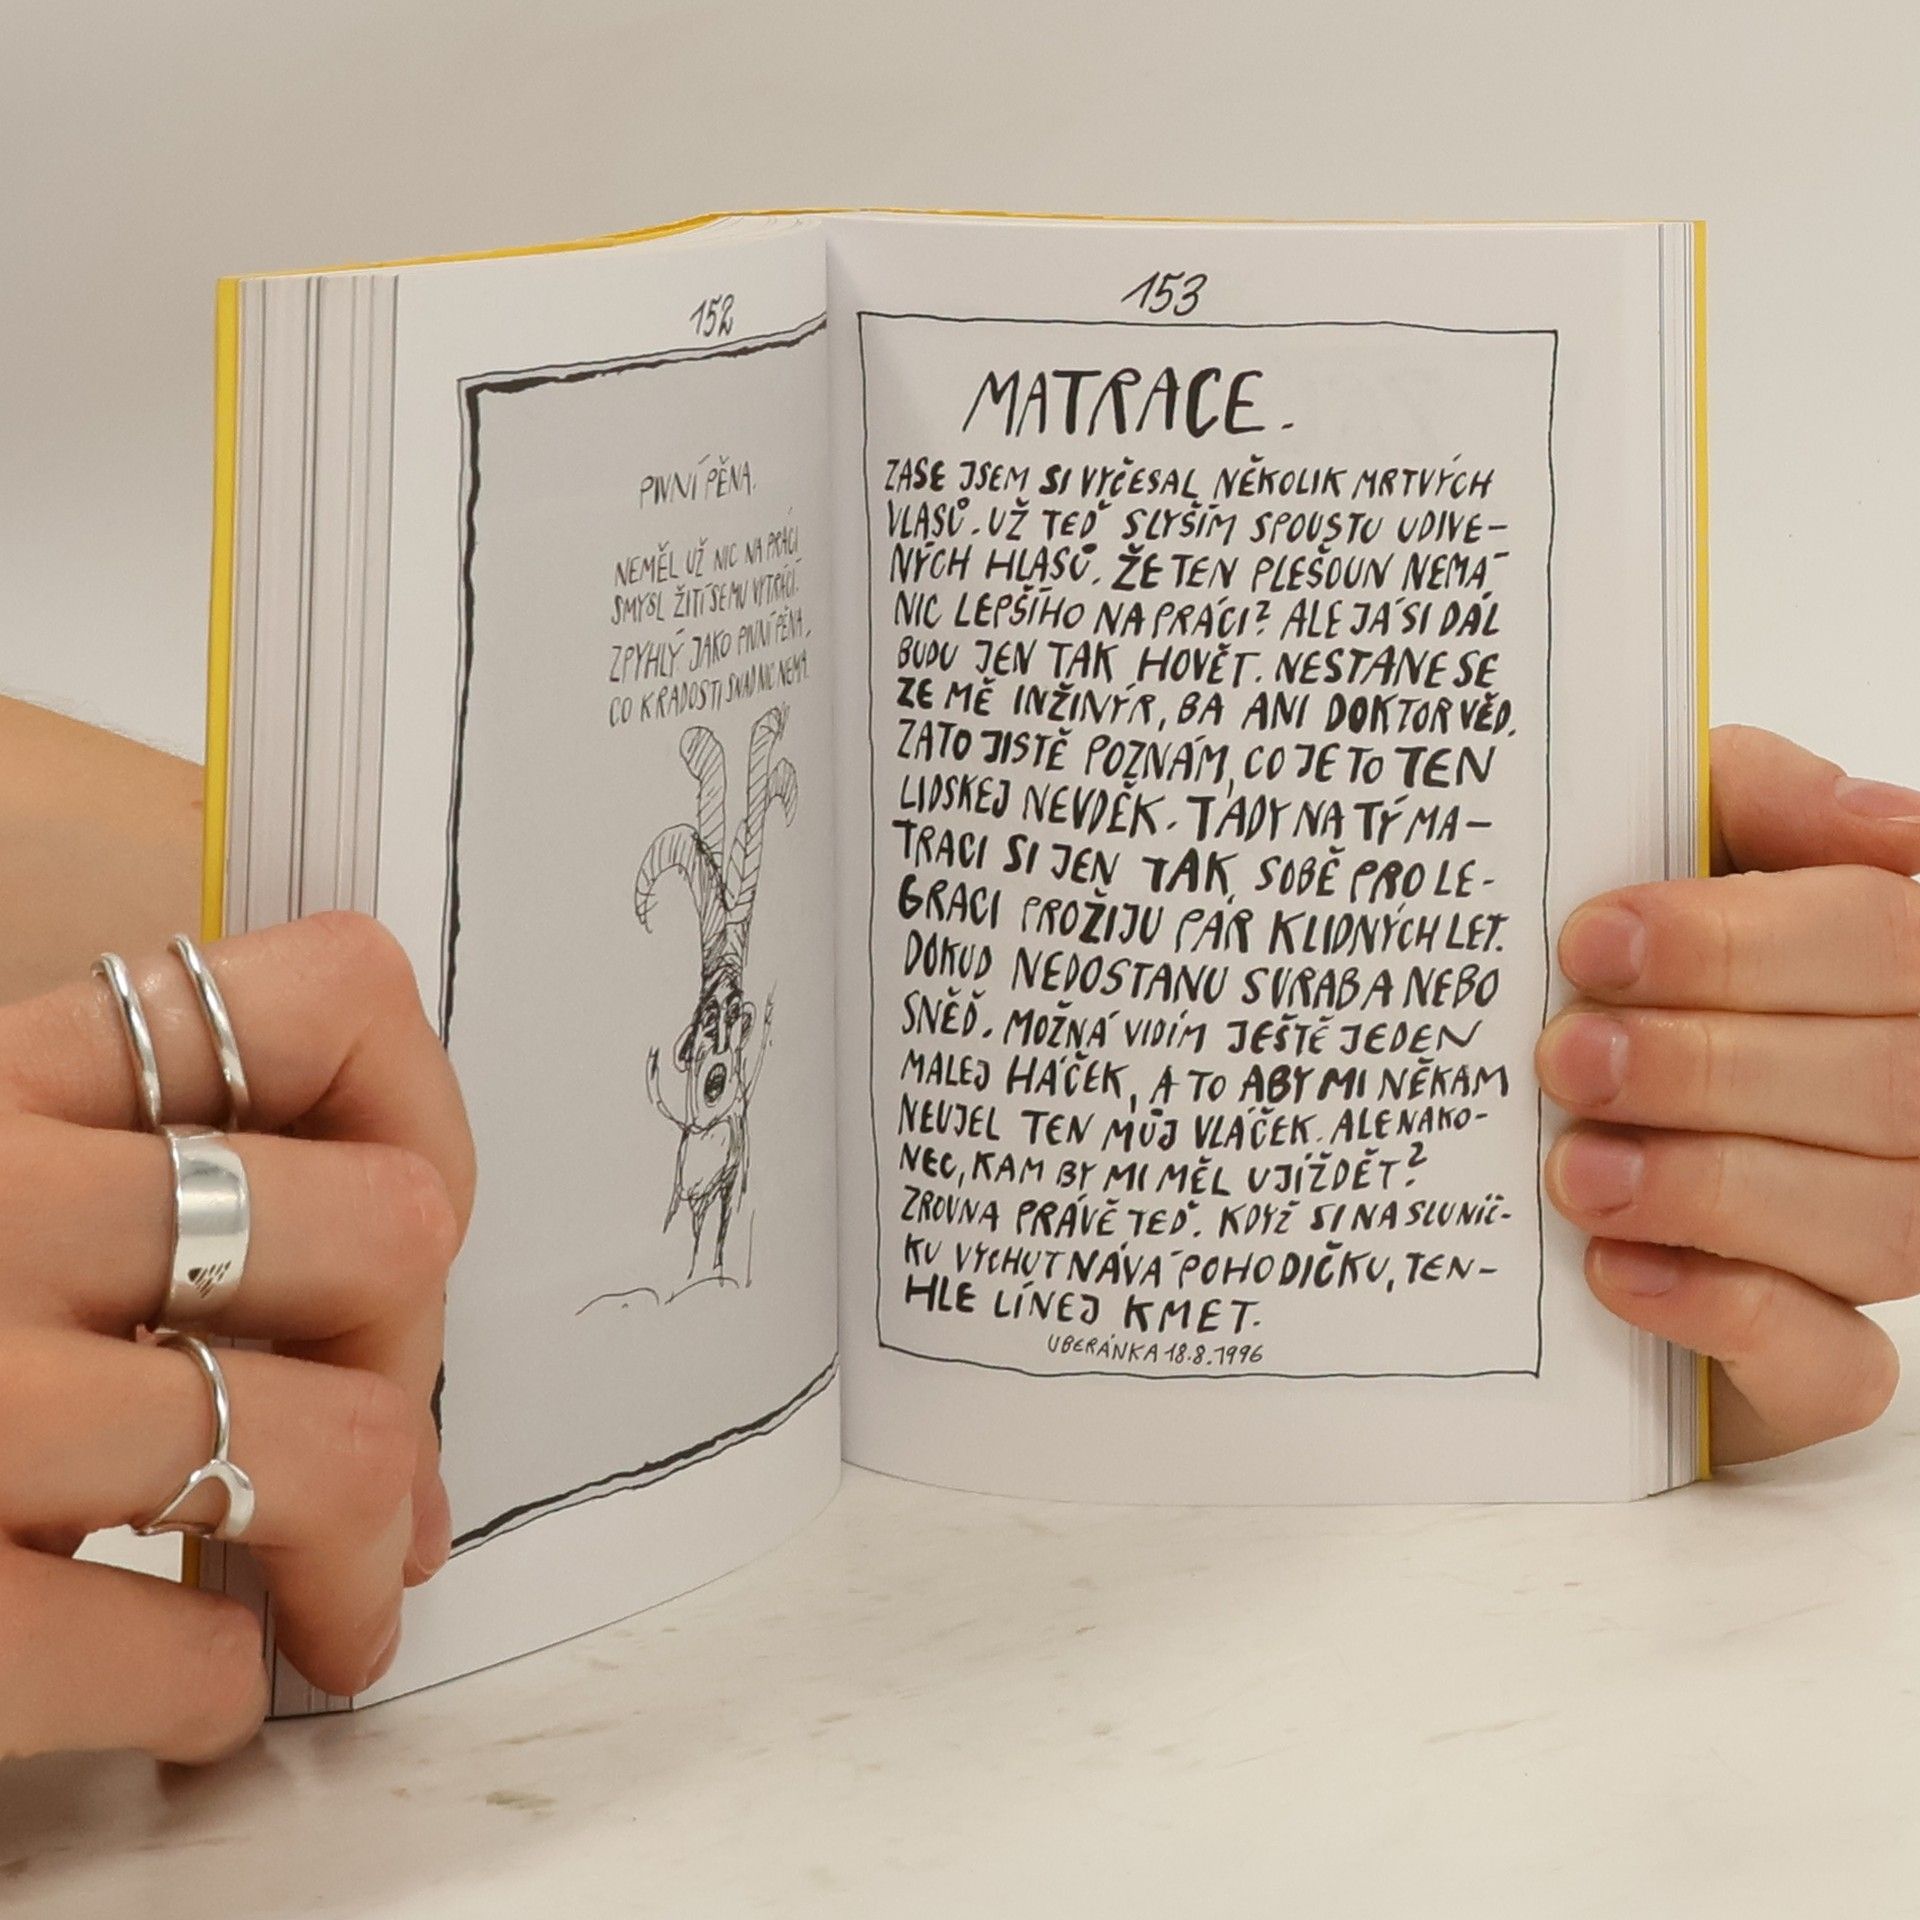 152
PIVNÍ PĚNA.
NEMĚL UŽ NIC NA PRÁCI
SMYSL ŽITÍ SE MU VYTRÁCÍ.
ZPYHLÝ JAKO PIVNÍ PĚNA.
CO K RADOSTI SNAD NIC NEMÁ.
153
MATRACE.
ZASE JSEM SI VYČESAL NĚKOLIK MRTVÝCH
VLASŮ. UŽ TEĎ SLYŠÍM SPOUSTU UDIVE-
NÝCH HLASŮ. ŽE TEN PLEŠOUN NEMÁ
NIC LEPŠÍHO NA PRÁCI? ALE JÁ SI DÁL
BUDU JEN TAK HOVĚT. NESTANE SE
ZE MĚ INŽINÝR, BA ANI DOKTOR VĚD.
ZATO JISTĚ POZNÁM, CO JE TO TEN
LIDSKEJ NEVDĚK. TADY NA TÝ MA-
TRACI SI JEN TAK SOBĚ PRO LE-
GRACI PROŽIJU PÁR KLIDNÝCH LET.
DOKUD NEDOSTANU SVRAB A NEBO
SNĚĎ. MOŽNÁ VIDÍM JEŠTĚ JEDEN
MALEJ HÁČEK, A TO ABY MI NĚKAM
NEUJEL TEN MŮJ VLÁČEK. ALE NAKO-
NEC, KAM BY MI MĚL UJÍŽDĚT?
ZROVNA PRÁVĚ TEĎ. KDYŽ SI NA SLUNÍČ-
KU VYCHUTNÁVÁ POHODIČKU, TEN-
HLE LÍNEJ KMET.
UBERÁNKA 18.8.1996